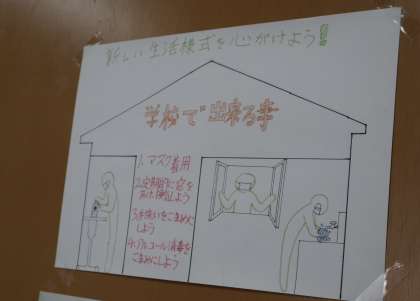 新しい生活様式を心がけよう!
学校で出来る事
1.マスク着用
2.定期的に窓を
あけ換気しよう
3.手洗いをこまめに
しよう
4.アルコール消毒を
こまめにしよう